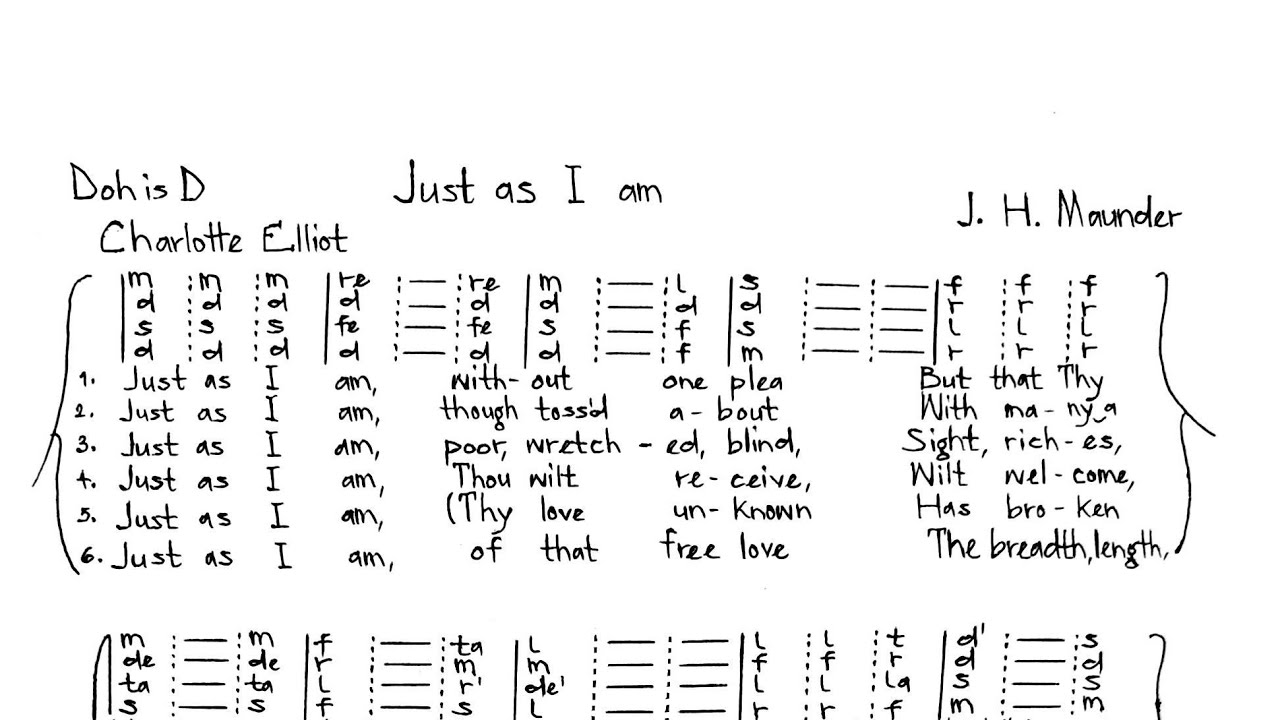 Doh is D Just as I am
J. H. Maunder
Charlotte Elliot
|m :m :m |re :— :re |m :— :l |s :— :— |f :f :f
|d :d :d |d :— :d |d :— :d |d :— :— |r :r :r
|s :s :s |fe :— :fe |s :— :f |s :— :— |l :l :l
|d :d :d |d :— :d |d :— :f |m :— :— |r :r :r
1. Just as I am, with-out one plea But that Thy
2. Just as I am, though toss'd a-bout With ma-ny a
3. Just as I am, poor, wretch-ed, blind, Sight, rich-es,
4. Just as I am, Thou wilt re-ceive, Wilt wel-come,
5. Just as I am, (Thy love un-known Has bro-ken
6. Just as I am, of that free love The breadth, length,
|m :— :m |f :— :ta |l :— :— |l :l :t |d' :— :s
|de :— :de |r :— :m |m :— :— |f :f :r |d :— :d
|ta :— :ta |l :— :r' |de' :— :— |l :l :la |s :— :s
|s :— :s |f :— :s |l :— :— |r :r :f |m :— :m